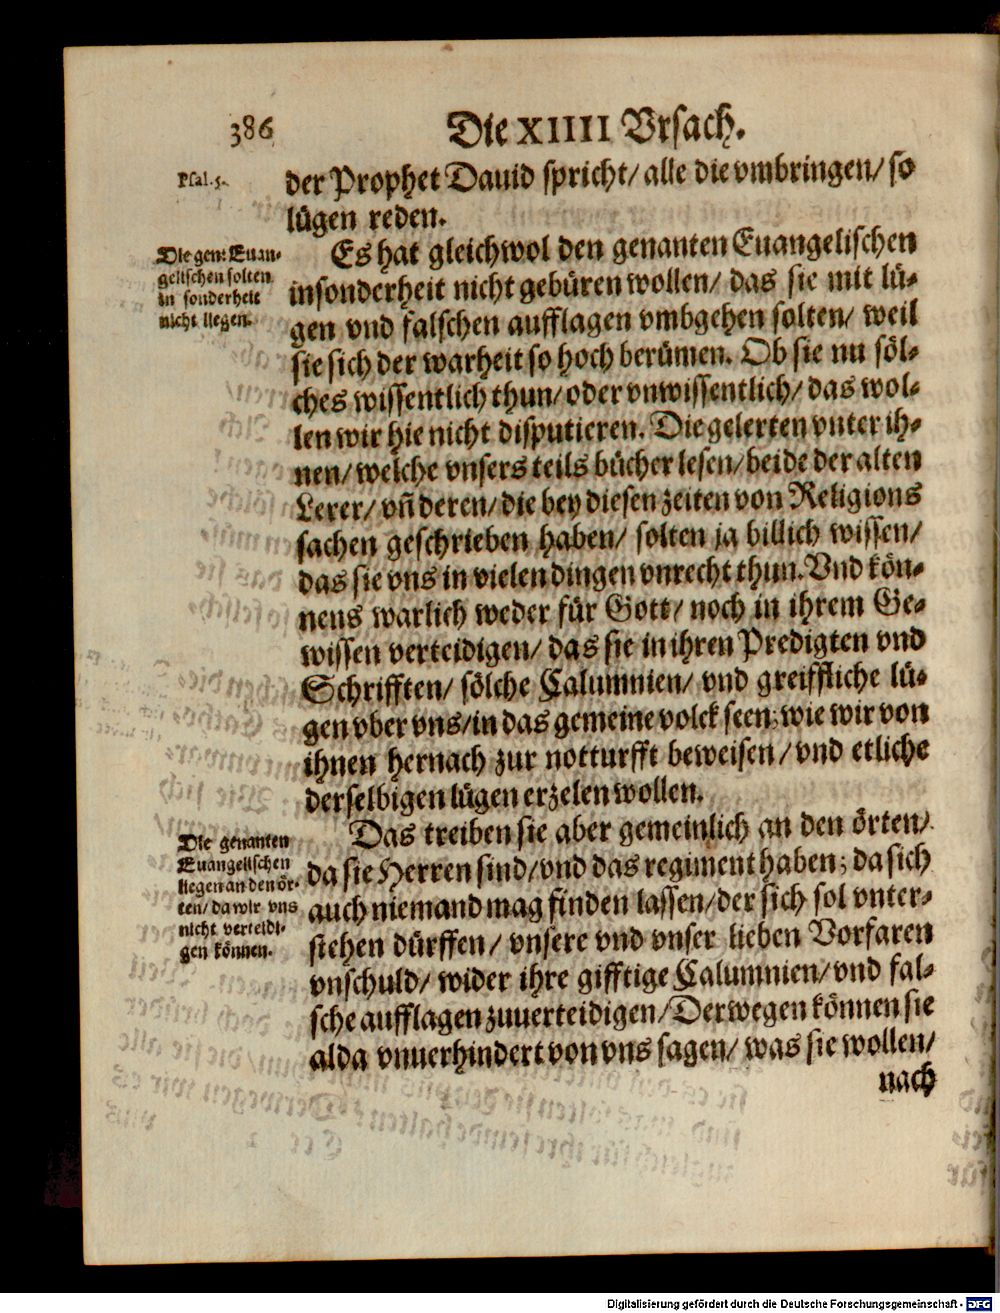 386
Die XIIII Vrsach.
Psal. 5.
der Prophet Dauid spricht/ alle die vmbringen/ so
lügen reden.
Die gen: Euan-
gelischen solten
in sonderheit
nicht liegen.
Es hat gleichwol den genanten Euangelischen
insonderheit nicht gebüren wollen/ das sie mit lü-
gen vnd falschen aufflagen vmbgehen solten/ weil
sie sich der warheit so hoch berümen. Ob sie nu söl-
ches wissentlich thun/ oder vnwissentlich/ das wol-
len wir hie nicht disputieren. Die gelerten vnter ih-
nen/ welche vnsers teils bücher lesen/ beide der alten
Lerer/ vñ deren/ die bey diesen zeiten von Religions
sachen geschrieben haben/ solten ja billich wissen/
das sie vns in vielen dingen vnrecht thun. Vnd kön-
nens warlich weder für Gott/ noch in ihrem Ge-
wissen verteidigen/ das sie in ihren Predigten vnd
Schrifften/ sölche Calumnien/ vnd greiffliche lü-
gen vber vns/ in das gemeine volck seen; wie wir von
ihnen hernach zur notturfft beweisen/ vnd etliche
derselbigen lügen erzelen wollen.
Die genanten
Euangelischen
liegen an den ör-
ten/ da wir vns
nicht verteidi-
gen können.
Das treiben sie aber gemeinlich an den örten/
da sie Herren sind/ vnd das regiment haben; da sich
auch niemand mag finden lassen/ der sich sol vnter-
stehen dürffen/ vnsere vnd vnser lieben Vorfaren
vnschuld/ wider ihre gifftige Calumnien/ vnd fal-
sche aufflagen zuuerteidigen/ Derwegen können sie
alda vnuerhindert von vns sagen/ was sie wollen/
nach
Digitalisierung gefördert durch die Deutsche Forschungsgemeinschaft - DFG